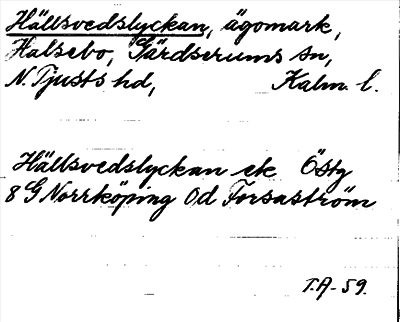 Hällsvedslyckan, ägomark,
Halsebo, Gärdserums sn,
N. Tjusts hd, Kalm. l.
Hällsvedslyckan ek Östg
8 G Norrköping 0d Forsaström
T.A-59.